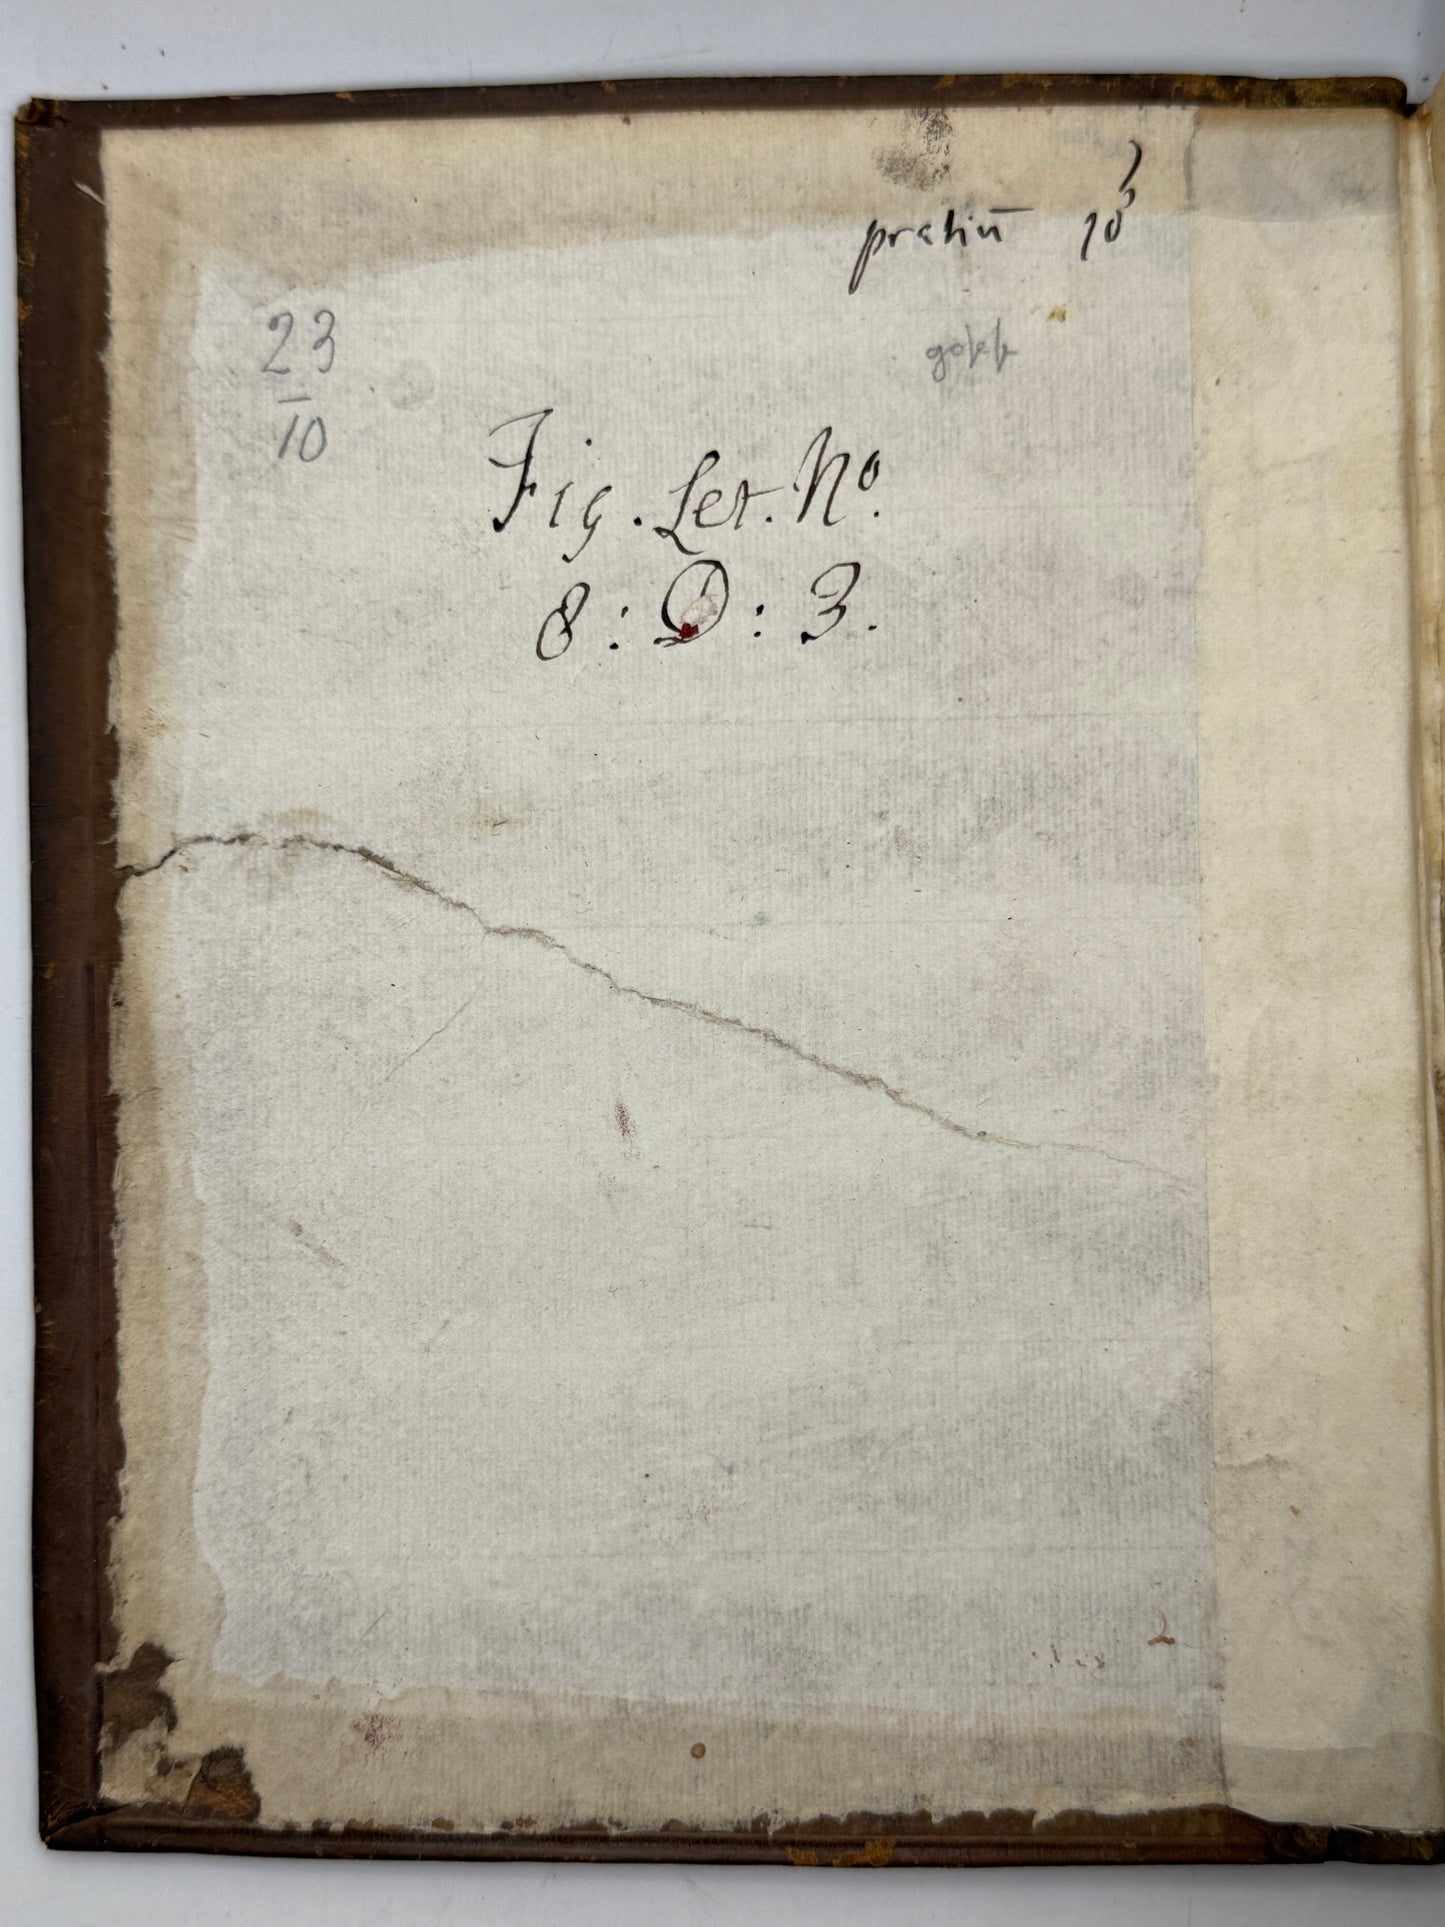 pratiū 10
23
10
Fig. Let. No.
8 : D : 3.